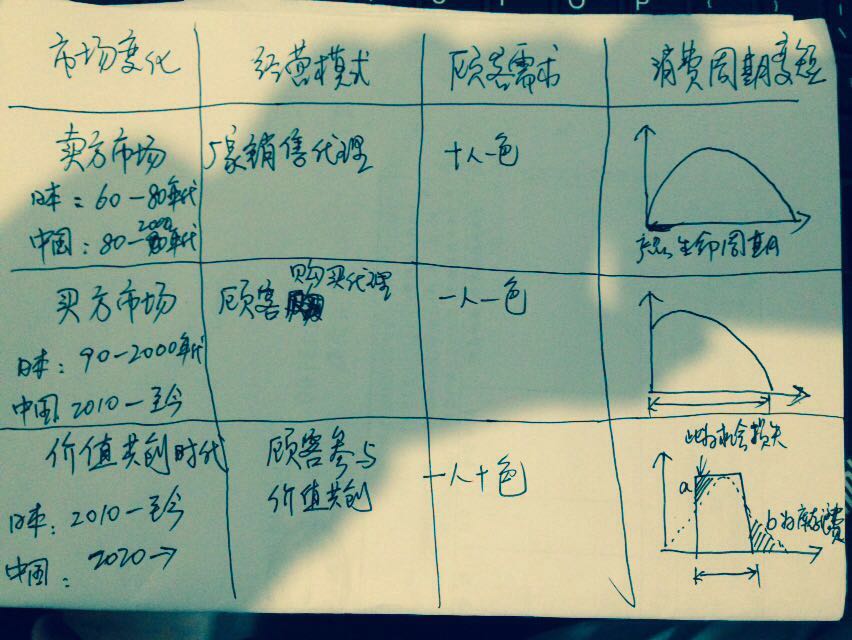 市场变化 经营模式 顾客需求 消费周期变短
卖方市场 厂家销售代理 十人一色
日本：60—80年代
中国：80—2000年代
产品生命周期
买方市场 顾客购买代理 一人一色
日本：90—2000年代
中国 2010—至今
价值共创时代 顾客参与 一人十色 此为机会损失
价值共创
日本：2010—至今 a
中国：2020→ b为库存浪费